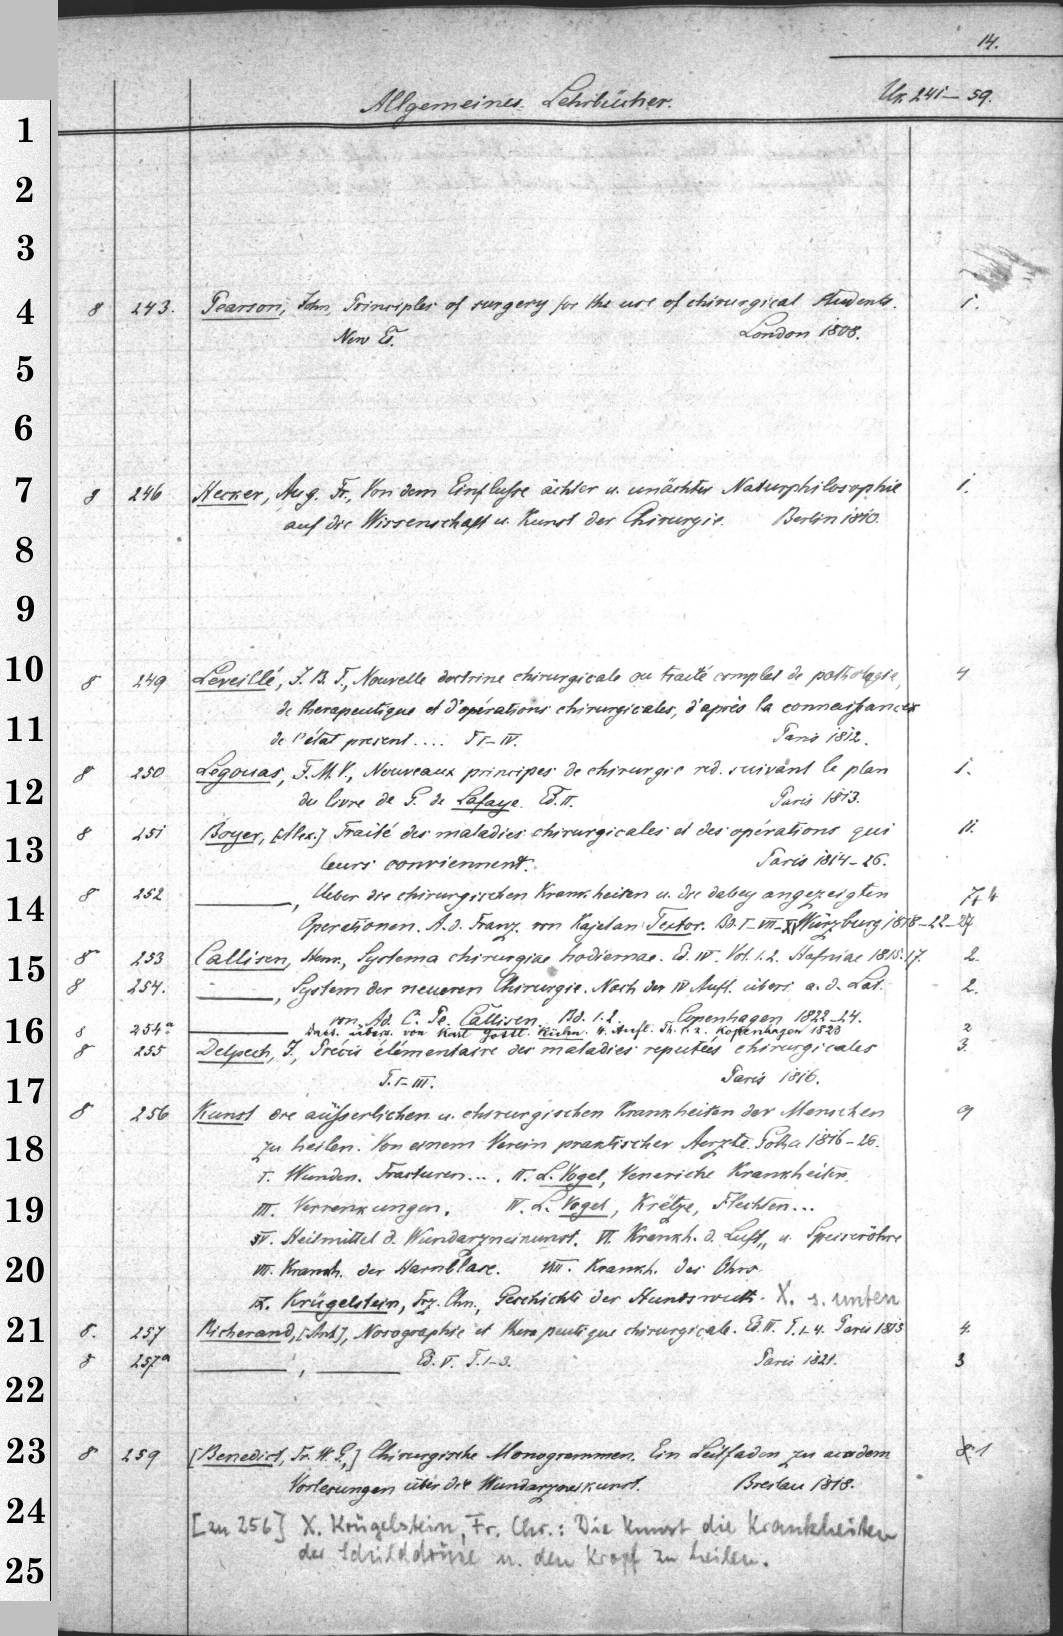 14.
Allgemeines Lehrbücher. Nr. 241–59.
1
2
3
4
8 243. Pearson, John, Principles of surgery for the use of chirurgical students. 1.
New Ed. London 1808.
5
6
7
8 246 Hecker, Aug. Fr., Von dem Einflusse ächter u. unächter Naturphilosophie 1.
auf die Wissenschaft u. Kunst der Chirurgie. Berlin 1810.
8
9
10
8 249 Léveillé, J. B. F., Nouvelle doctrine chirurgicale ou traité complet de pathologie, 4
de therapeutique et d'opérations chirurgicales, d'après la connaissances
11
de l'état present.... T I–IV. Paris 1812.
8 250 Legouas, F. M. V., Nouveaux principes de chirurgie red. suivant le plan 1.
12
du livre de G. de Lafaye. Ed. II. Paris 1813.
8 251 Boyer, [Alex.] Traité des maladies chirurgicales et des opérations qui 11.
13
leurs conviennent. Paris 1814–26.
8 252 ———, Ueber die chirurgischen Krankheiten u. die dabey angezeigten
14
Operationen. A. d. Franz. von Kajetan Textor. Bd. I–VII–XI Würzburg 1818–22–27
8 253 Callisen, Henr., Systema chirurgiae hodiernae. Ed. IV. Vol. 1.2. Hafniae 1815.17. 2.
15
8 254. ———, System der neueren Chirurgie. Nach der IV Aufl. übers. a. d. Lat. 2.
von Ad. C. P. Callisen. Bd. 1.2. Copenhagen 1822–24.
16
8 254a ——— Dass. übers. von Karl Gottl. Kühn. 4. Aufl. Th. 1.2. Kopenhagen 1828 2
8 255 Delpech, J., Précis élémentaire des maladies reputées chirurgicales 3.
17
T. I–III. Paris 1816.
8 256 Kunst die äüsserlichen u. chirurgischen Krankheiten der Menschen 9
18
zu heilen. Von einem Verein praktischer Aerzte. Gotha 1816–26.
I. Wunden. Fracturen.... II. L. Vogel, Venerische Krankheiten.
19
III. Verrenkungen. IV. L. Vogel, Krätze, Flechten...
IV. Heilmittel d. Wundarzneikunst. VI. Krankh. d. Luft„ u. Speiseröhre
20
VII. Krankh. der Harnblase. VIII. Krankh. des Ohrs
IX. Krügelstein, Frz. Chn., Geschichte der Hundswuth. X. s. unten
21
8. 257 Richerand, [Anth], Nosographie et therapeutique chirurgicale. Ed. IV. T. 1–4. Paris 1815 4.
8 257a ———, ——— Ed. V. T. 1–3. Paris 1821. 3
22
23
8 259 [Benedict, Tr. W. G.,] Chirurgische Monogrammen. Ein Leitfaden zu academ 1
Vorlesungen über die Wundarzneikunst. Breslau 1818.
24
[zu 256] X. Krügelstein, Fr. Chr.: Die Kunst die Krankheiten
der Schilddrüse u. den Kropf zu heilen.
25